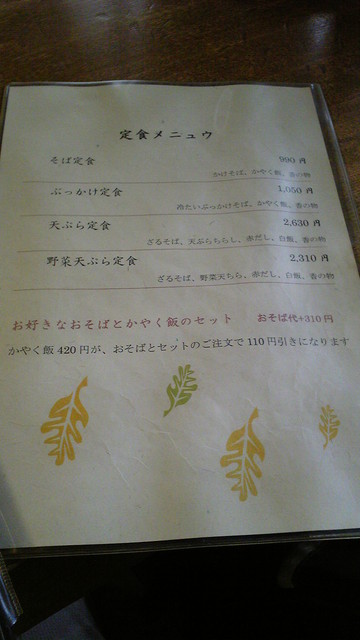 定食メニュウ
そば定食 990 円
かけそば、かやく飯、香の物
ぶっかけ定食 1,050 円
冷たいぶっかけそば、かやく飯、香の物
天ぷら定食 2,630 円
ざるそば、天ぷらちらし、赤だし、白飯、香の物
野菜天ぷら定食 2,310 円
ざるそば、野菜天ちら、赤だし、白飯、香の物
お好きなおそばとかやく飯のセット おそば代+310円
かやく飯 420 円が、おそばとセットのご注文で 110 円引きになります